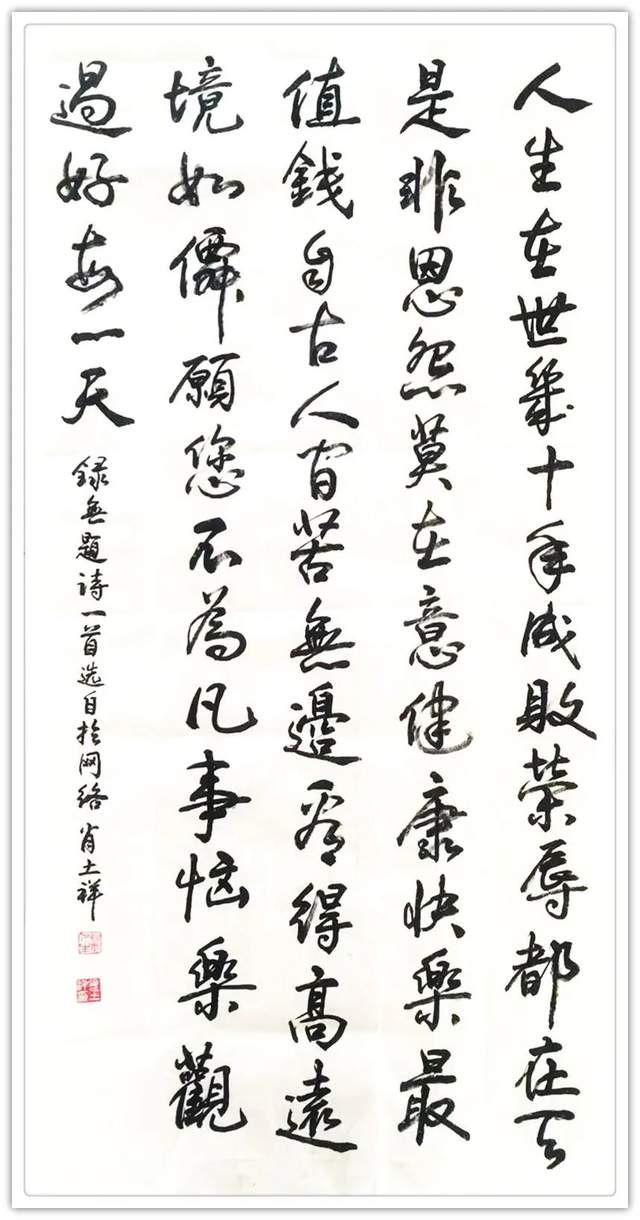 人生在世幾十年成敗榮辱都在天
是非恩怨莫在意健康快樂最
值錢自古人間苦無邊看得高遠
境如僊願您不為凡事惱樂觀
過好每一天
録無題詩一首選自於网络肖土祥